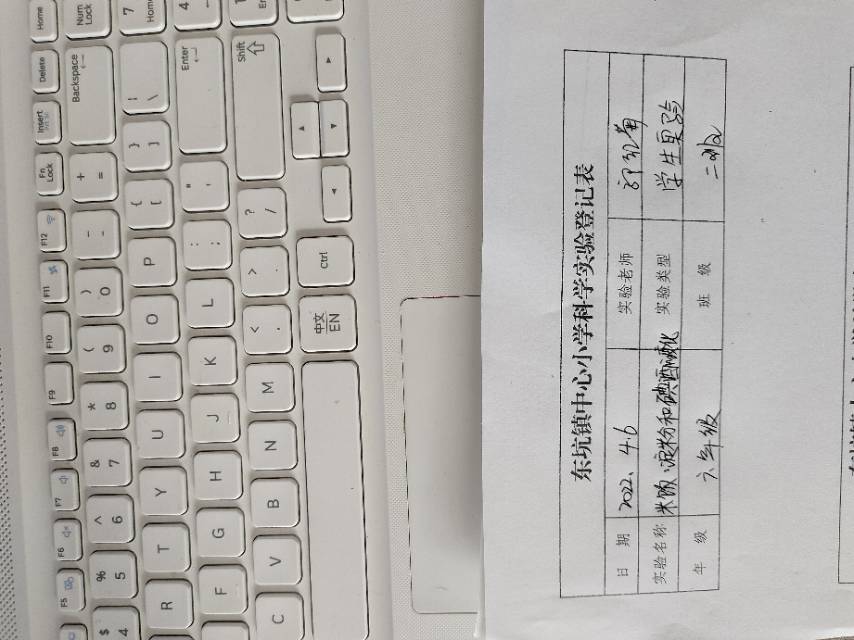 Home
Delete
Insert
Fn Lock
F12
F11
F10
F9
F8
F7
F6
F5
Num Lock
Backspace
+ =
- -
) 0
( 9
* 8
& 7
^ 6
% 5
$ 4
7 Home
| \
} ]
{ [
P
O
I
U
Y
T
R
4
Enter
" '
: ;
L
K
J
H
G
F
Shift
? /
> .
< ,
M
N
B
V
C
Ctrl
中文 EN
东坑镇中心小学科学实验登记表
日 期 2022. 4.6 实验老师
实验名称 米饭、淀粉和碘酒 实验类型 学生实验
年 级 六年级 班 级